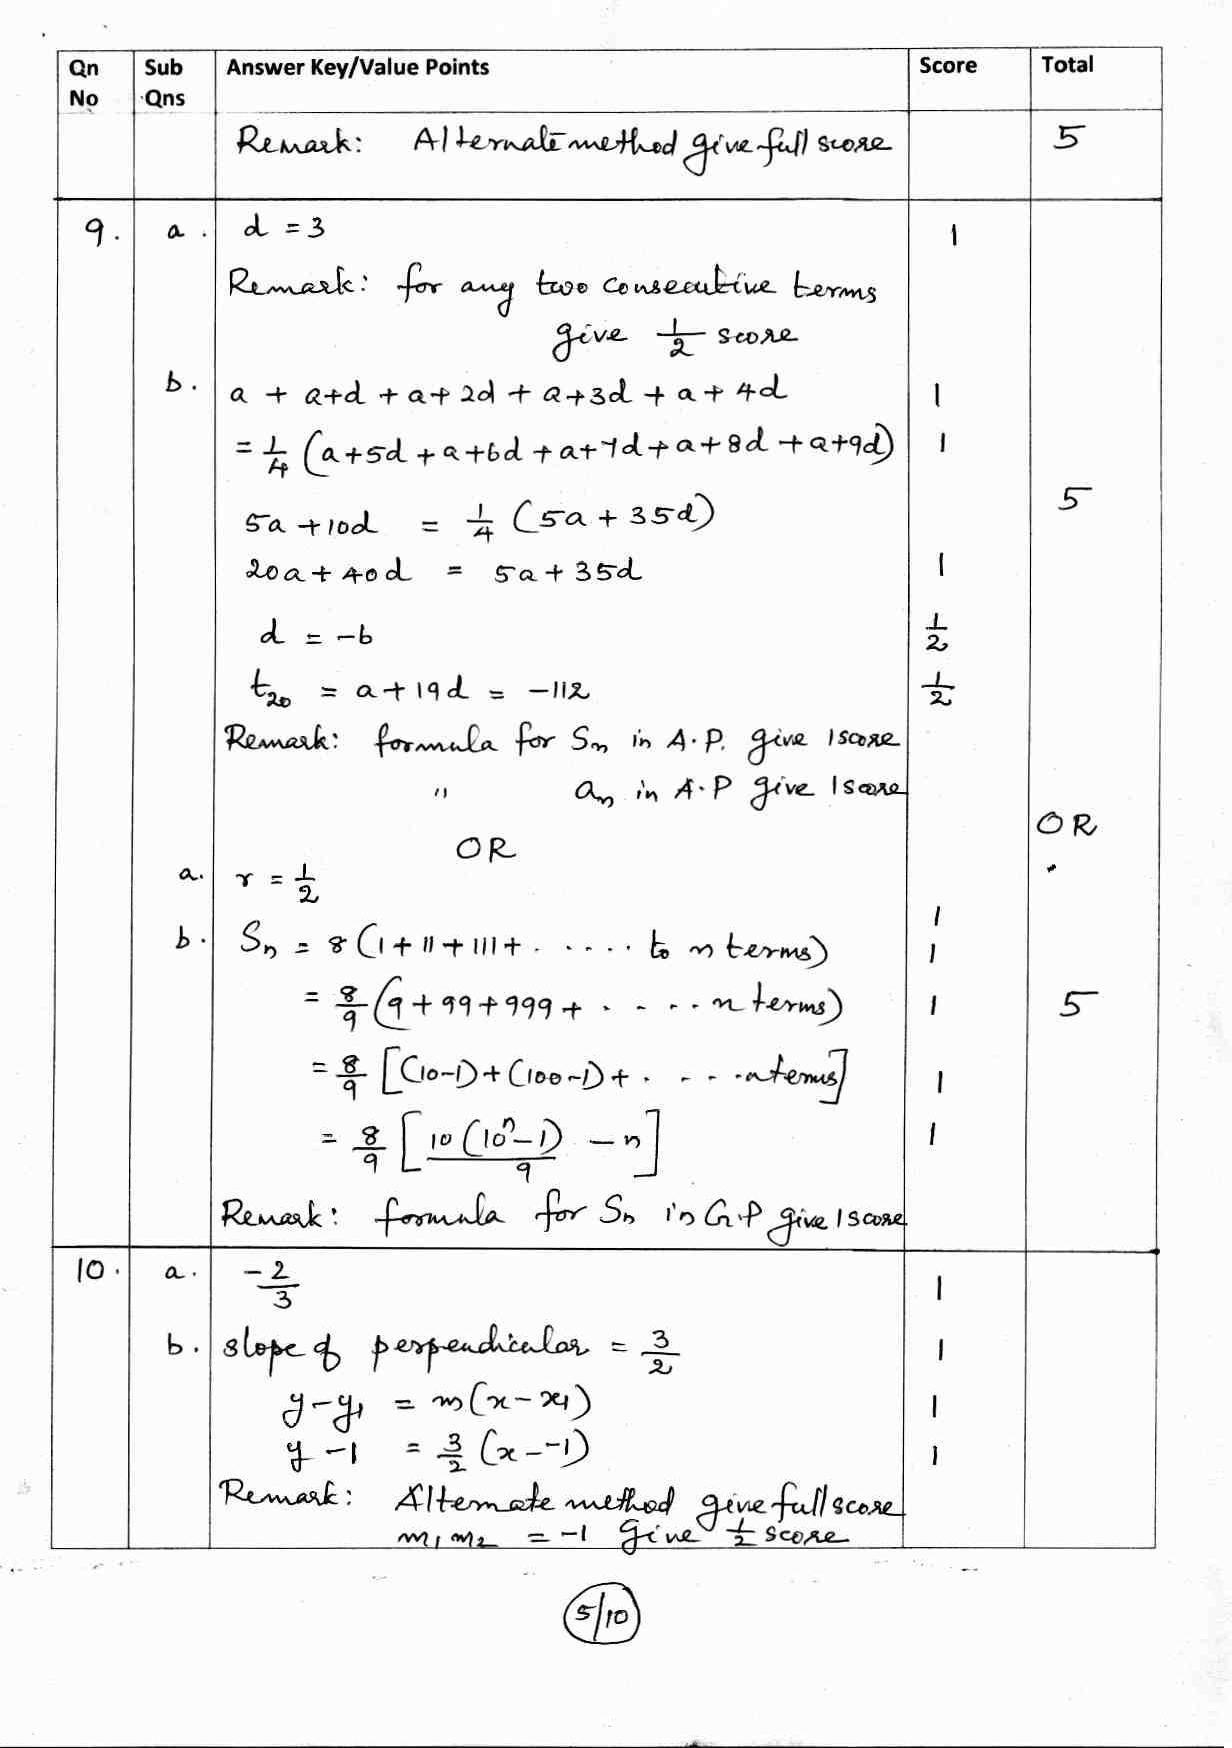 Qn No Sub Qns Answer Key/Value Points Score Total
Remark: Alternate method give full score 5
9. a. d = 3 1
Remark: for any two consecutive terms
give 1/2 score
b. a + a+d + a+2d + a+3d + a+4d 1
= 1/4 (a+5d + a+6d + a+7d + a+8d + a+9d) 1
5
5a + 10d = 1/4 (5a + 35d)
20a + 40d = 5a + 35d 1
d = -6 1/2
t₂₀ = a + 19d = -112 1/2
Remark: formula for Sn in A.P. give 1 score
" an in A.P give 1 score
OR
OR
a. r = 1/2
1
b. Sn = 8 (1 + 11 + 111 + . ..... to n terms) 1
= 8/9 (9 + 99 + 999 + . - - .. n terms) 1 5
= 8/9 [(10-1) + (100-1) + . - - . n terms] 1
= 8/9 [10(10ⁿ-1)/9 - n] 1
Remark: formula for Sn in G.P give 1 score
10. a. -2/3 1
b. slope of perpendicular = 3/2 1
y - y₁ = m(x - x₁) 1
y - 1 = 3/2 (x - -1) 1
Remark: Alternate method give full score
m₁ m₂ = -1 give 1/2 score
5/10